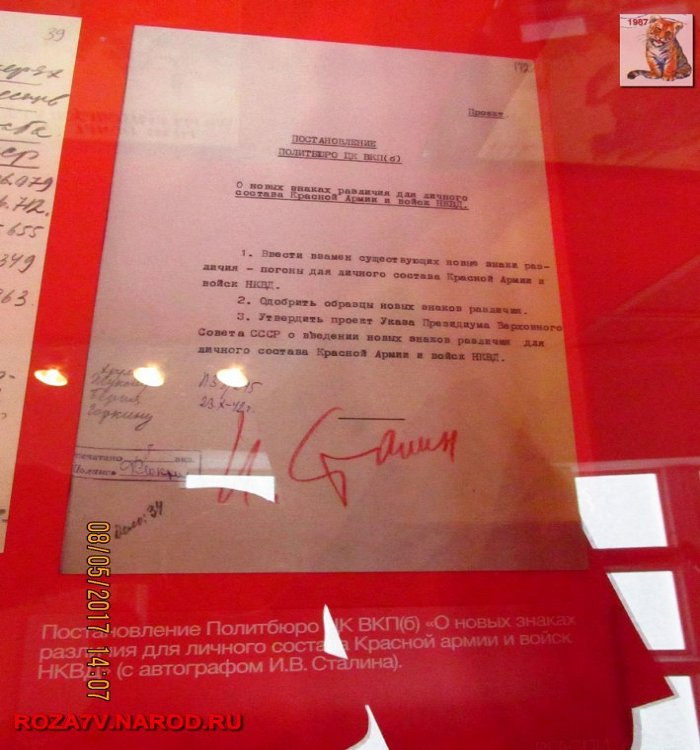 39
1987
172.
Проект.
ПОСТАНОВЛЕНИЕ
ПОЛИТБЮРО ЦК ВКП(б)
О новых знаках различия для личного
состава Красной Армии и войск НКВД.
1. Ввести взамен существующих новые знаки раз-
личия – погоны для личного состава Красной Армии и
войск НКВД.
2. Одобрить образцы новых знаков различия.
3. Утвердить проект Указа Президиума Верховного
Совета СССР о введении новых знаков различия для
личного состава Красной Армии и войск НКВД.
23.X-42г.
И. Сталин
Постановление Политбюро ЦК ВКП(б) «О новых знаках
различия для личного состава Красной армии и войск
НКВД» (с автографом И.В. Сталина).
08/05/2017 14:07
ROZA7V.NAROD.RU